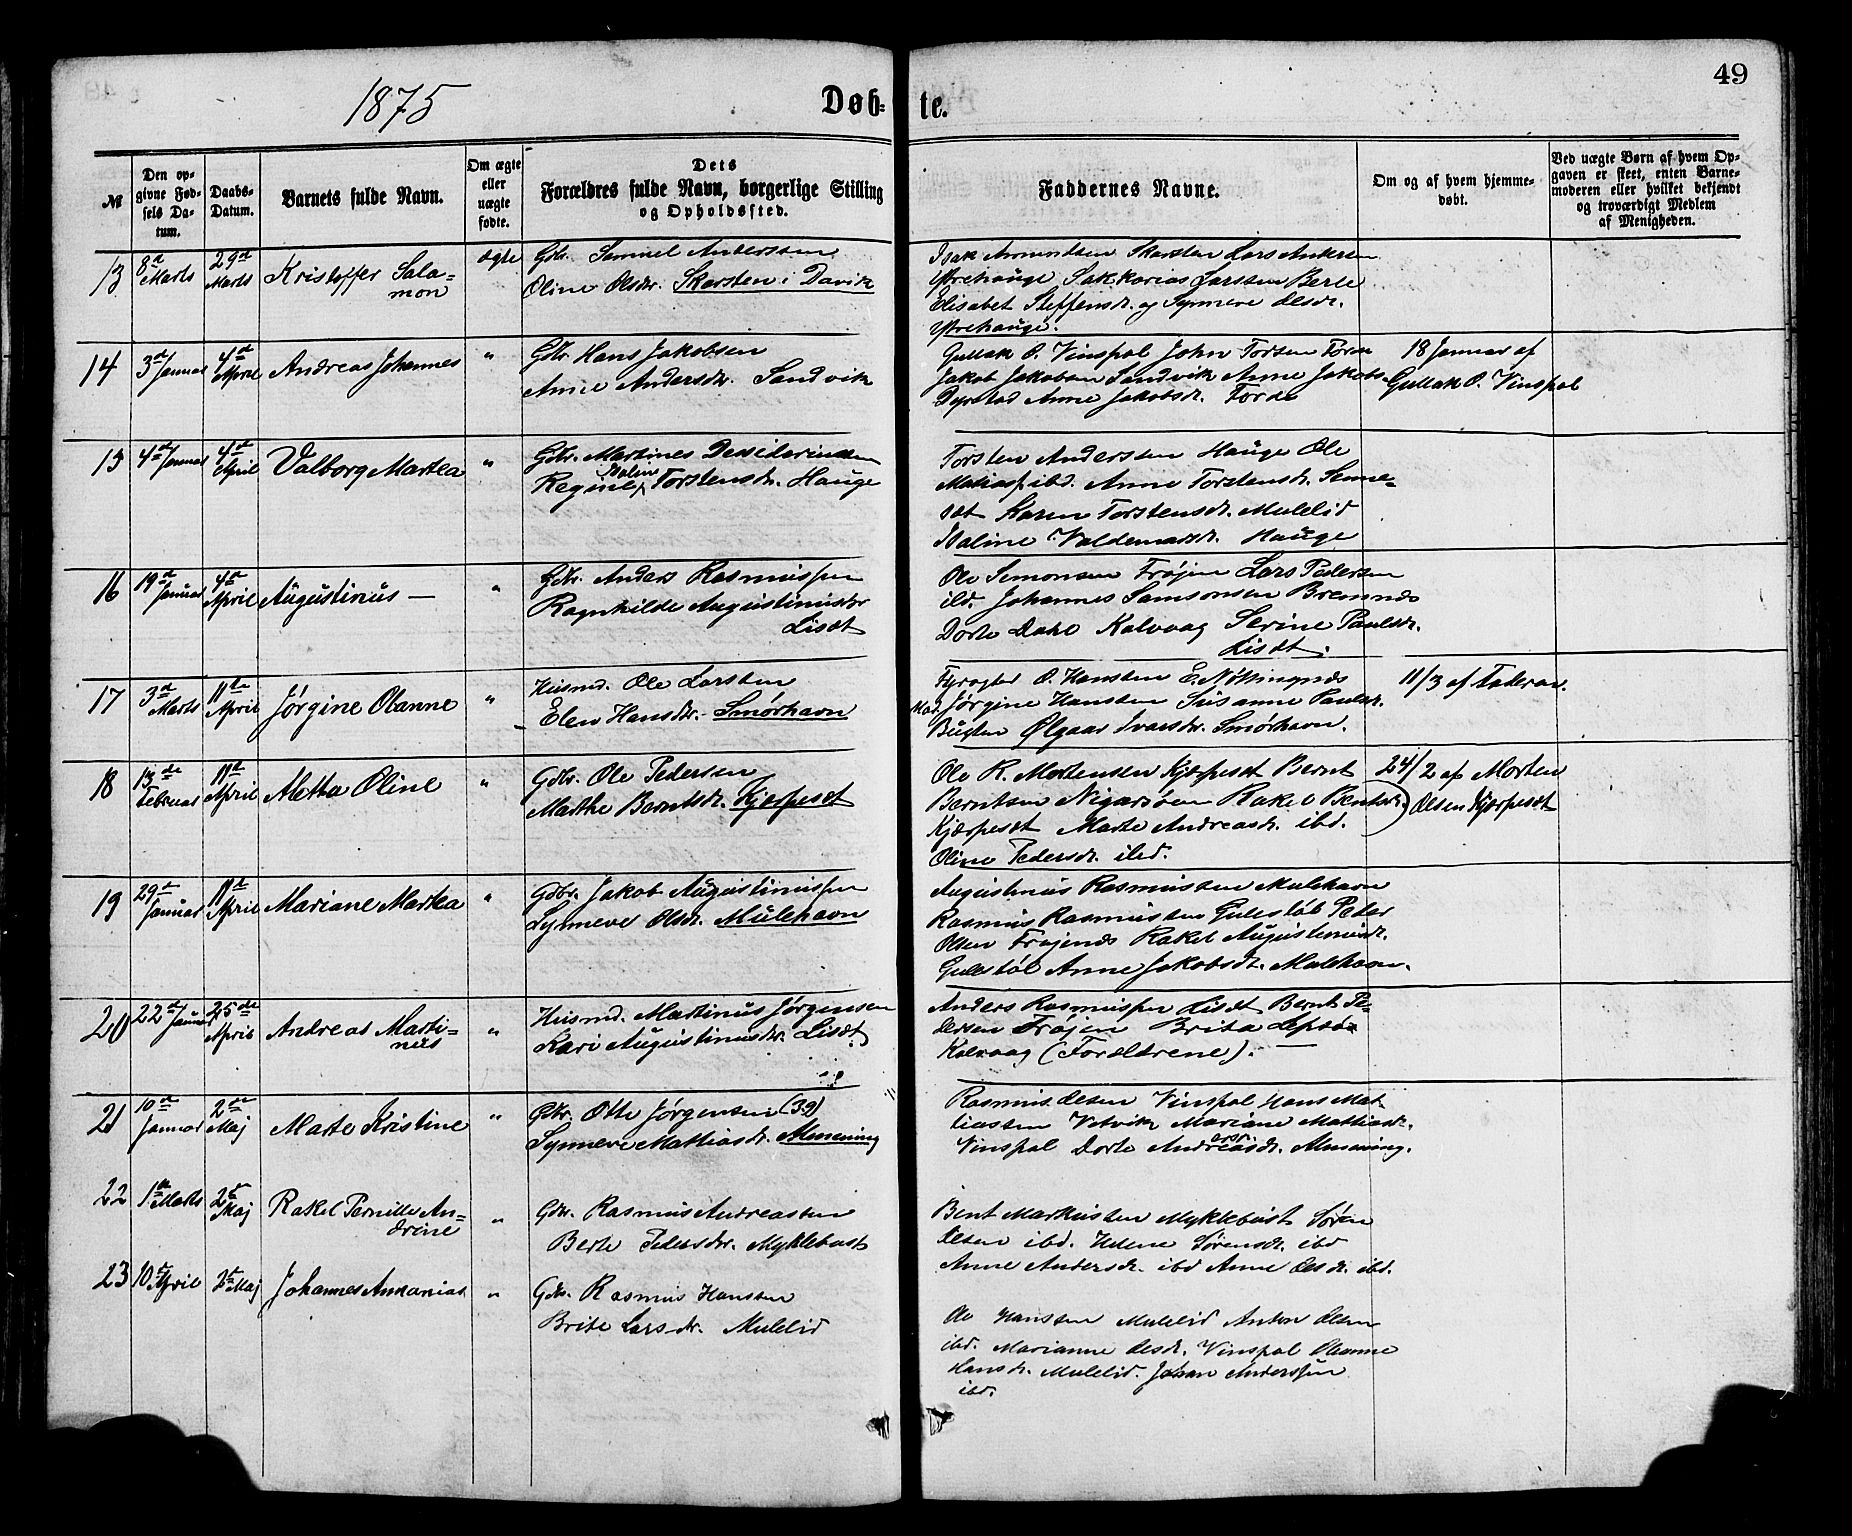 1875
Døb-
te.
49
№
Den op-
givne Fød-
sels Da-
tum.
Daabs-
Datum.
Barnets fulde Navn.
Om ægte
eller
uægte
fødte.
Dets
Forældres fulde Navn, borgerlige Stilling
og Opholdssted.
Faddernes Navne.
Om og af hvem hjemme-
døbt.
Ved uægte Børn af hvem Op-
gaven er skeet, enten Barne-
moderen eller hvilket bekjendt
og troværdigt Medlem
af Menigheden.
13 8de Marts 29de Marts Kristoffer Sala=
mon
ægte
Gbr. Samuel Anderssen
Oline Olsdr. Skorsten i Davik
Isak Amundsen Skorsten Lars Andersen
Ytrehauge Sakkarias Larsten Berle
Elisabet Steffensdr. og Synneve Olsdr.
Ytrehauge.
14 3de Januar 4de April Andreas Johannes "
Gbr. Hans Jakobsen
Anne Andersdr. Sandvik
Gullak O. Vinspol John Torsen Førde
Jakob Jakobsen Sandvik Anne Jakobs.
Dyrstad Anne Jakobsdr. Førde
18 Januar af
Gullak O. Vinspol
15 4de Januar 4de April Valborg Martea "
Gbr. Martines Dessideriussen
Regine Torstensdr. Hauge
Torsten Anderssen Hauge Ole
ibd. Anne Torstensdr. Senne-
set Karen Torstensdr. Mulelid
Valdemarsdr. Hauge
16 19de Januar 4de April Augustinus — "
Gbr. Anders Rasmussen
Ragnhilde Augustinusdr
Liset
Ole Simonsen Frøjen Lars Pedersen
ibd. Johannes Samsonsen Bremnes
Dorte Dahl Kalvaag Serine Paulsdr.
Liset.
17 3de Marts 11te April Jørgine Olanne "
Husmd. Ole Larsten
Elen Hansdr. Smørhavn
Fyrogter O. Hansten
Mad. Jørgine Hansten Susanne Paulsdr.
Ølgaar Ivarsdr. Smørhavn.
11/3 af Faderen.
18 13de Februar 11te April Aletta Oline "
Gbr. Ole Pedersen
Marthe Berntsdr. Kjærpeset
Ole R. Mortensen Kjærpeset Bernt
Berntsen Nigarsøen Rakel Berntsdr.
Kjærpeset Marte Andreasdr. ibd.
Oline Pedersdr. ibd.
24/2 af Morten
Olsen Kjærpeset
19 29de Januar 11te April Mariane Martea "
Gbr. Jakob Augustinussen
Synneve Olsdr. Mulehavn
Augustinus Rasmussen Mulehavn
Rasmus Rasmussen Gulestøl Peder
Olsen Frøjenes Rakel Augustinusdr.
Gulestøl Anne Jakobsdr. Mulehavn.
20 22de Januar 25de April Andreas Marti=
nus
"
Husmd. Martinus Jørgensen
Kari Augustinusdr. Liset
Anders Rasmussen Liset Bernt Pe-
dersen Frøjen Brita
Kalvaag (Forældrene).
21 10de Januar 2den Maj Marte Kristine "
Gbr. Otte Jørgensen (39)
Synneve Mattiasdr. Almenning
Rasmus Olsen Vinspol Hans Mat-
tiassen Vetvik Mariane Mattiasdr.
Vinspol Dorte Andreasdr. Almenning.
22 1ste Marts 2den Maj Rakel Pernille An=
drine
"
Gbr. Rasmus Andreassen
Berte Pedersdr. Myklebust
Bent Markussen Myklebust Søren
Olsen ibd. Helene Sørensdr. ibd
Anne Andersdr. ibd Anne Olsdr. ibd.
23 10de April 2den Maj Johannes Annanias "
Gbr. Rasmus Hanssen
Brite Larsdr. Mulelid
Ole Hanssen Mulelid Anton Olsen
ibd. Marianne Olsdr. Vinspol Olianne
Hansdr. Mulelid. Johan Anderssen
ibd.